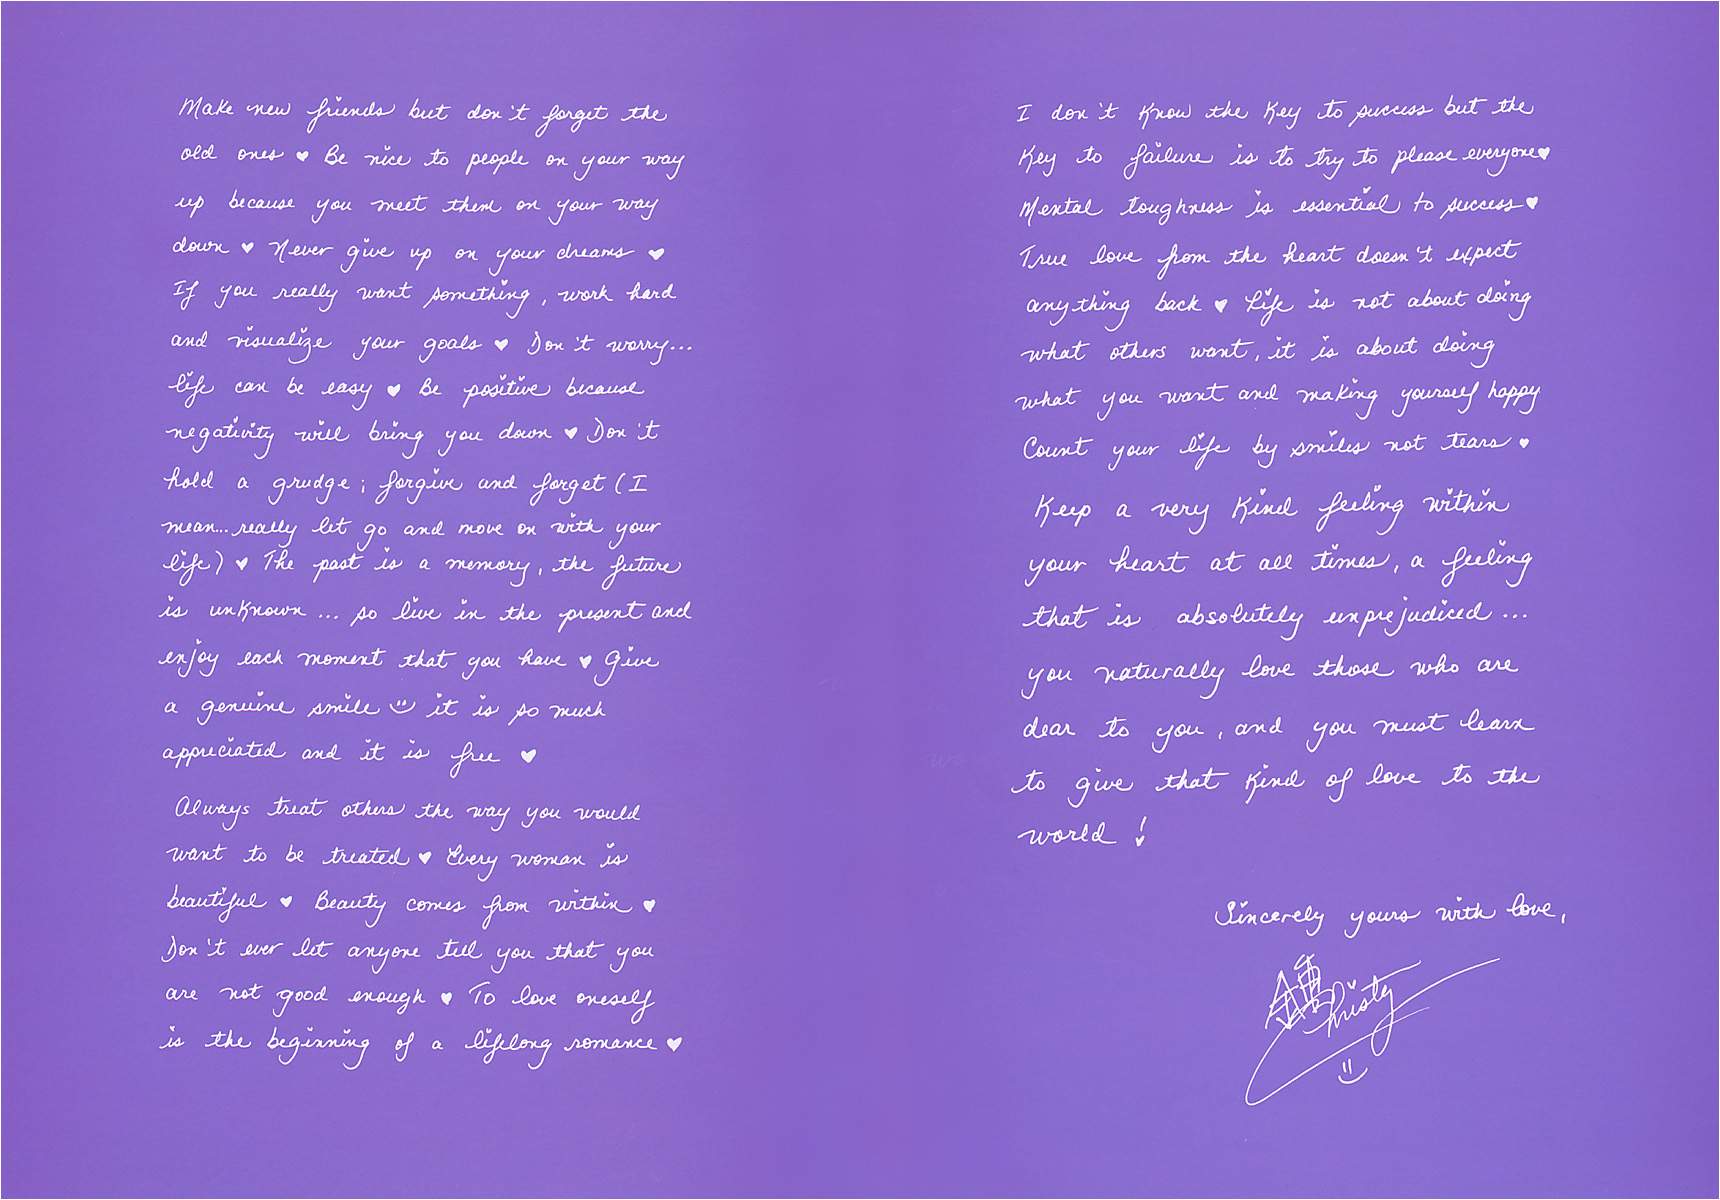 Make new friends but don't forget the
old ones ♥ Be nice to people on your way
up because you meet them on your way
down ♥ Never give up on your dreams ♥
If you really want something, work hard
and visualize your goals ♥ Don't worry...
life can be easy ♥ Be positive because
negativity will bring you down ♥ Don't
hold a grudge; forgive and forget (I
mean... really let go and move on with your
life) ♥ The past is a memory, the future
is unknown ... so live in the present and
enjoy each moment that you have ♥ Give
a genuine smile it is so much
appreciated and it is free ♥
Always treat others the way you would
want to be treated ♥ Every woman is
beautiful ♥ Beauty comes from within ♥
Don't ever let anyone tell you that you
are not good enough ♥ To love oneself
is the beginning of a lifelong romance ♥
I don't know the key to success but the
key to failure is to try to please everyone ♥
Mental toughness is essential to success ♥
True love from the heart doesn't expect
anything back ♥ Life is not about doing
what others want, it is about doing
what you want and making yourself happy
Count your life by smiles not tears ♥
Keep a very kind feeling within
your heart at all times, a feeling
that is absolutely unprejudiced ...
you naturally love those who are
dear to you, and you must learn
to give that kind of love to the
world !
Sincerely yours with love,